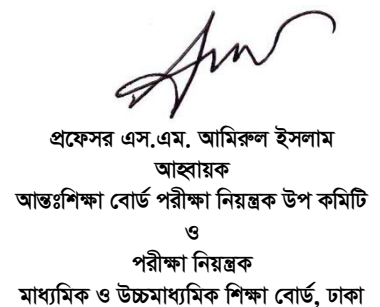 প্রফেসর এস.এম. আমিরুল ইসলাম
আহ্বায়ক
আন্তঃশিক্ষা বোর্ড পরীক্ষা নিয়ন্ত্রক উপ কমিটি
ও
পরীক্ষা নিয়ন্ত্রক
মাধ্যমিক ও উচ্চমাধ্যমিক শিক্ষা বোর্ড, ঢাকা